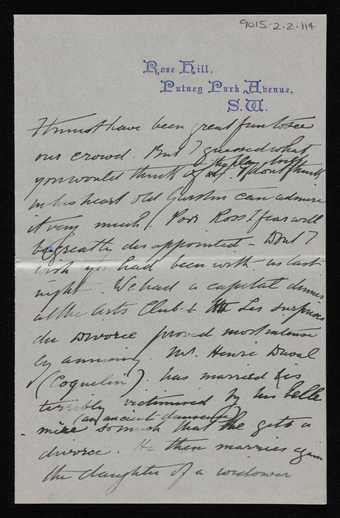 9015-2-2-114
Rose Hill,
Putney Park Avenue,
S.W.
It must have been great fun to see
our crowd. But I guessed what
you would think of the play but
I don't think
in his heart old can admire
it very much! Poor Ross I fear will
be greatly disappointed. Don't I
wish you had been with us last
night. We had a capital dinner
at the Arts Club & Les Surprises
du Divorce proved most intense
ly amusing. Mr. Henri Duval
(Coquelin), has married & is
terribly victimised by his belle
mère (an ancient danseuse)
so much that he gets a
divorce. He then marries again
the daughter of a widower